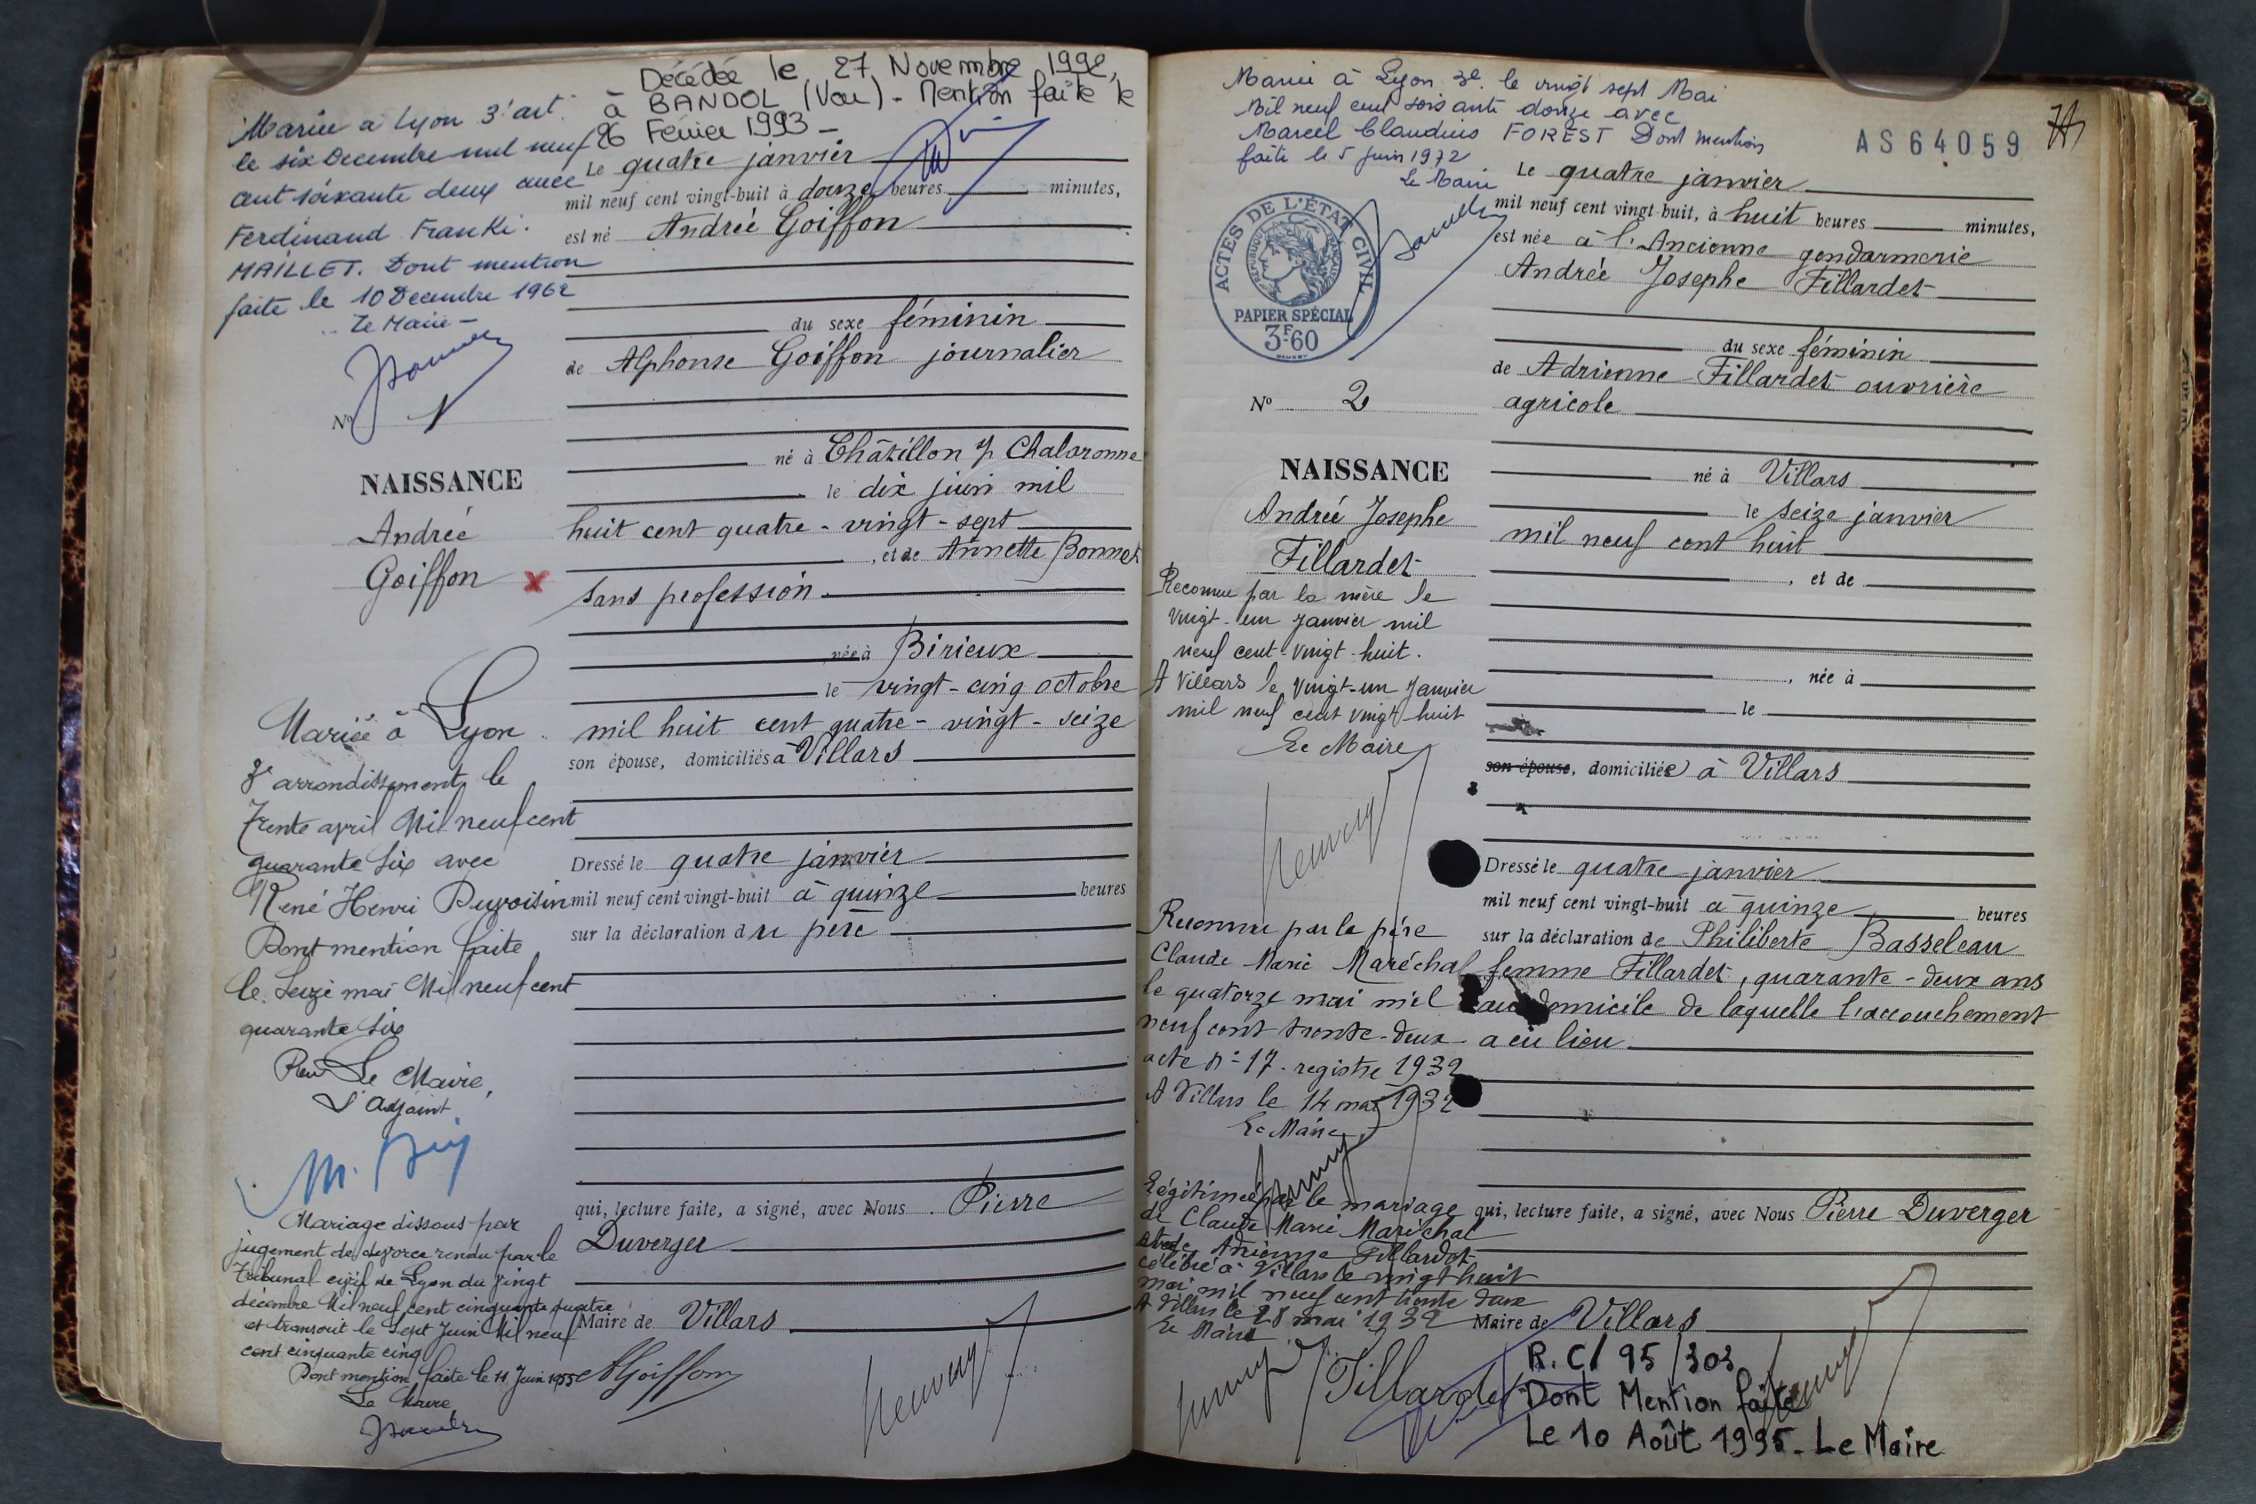 Décédée le 27 Novembre 1992,
à BANDOL (Var) - Mention faite le
26 Février 1993 -
Mariée à Lyon 3e art.
le six Decembre mil neuf
cent soixante deux avec
Ferdinand Franki
MAILLET. Dont mention
faite le 10 Decembre 1962
Le Maire -
No 1
NAISSANCE
Andrée
Goiffon x
Mariée à Lyon
3e arrondissement le
Trente avril Mil neuf cent
quarante six avec
René Henri Duvoisin
Dont mention faite
le Seize mai Mil neuf cent
quarante six
Pour Le Maire,
L'adjoint
Mariage dissous par
jugement de divorce rendu par le
Tribunal civil de Lyon du vingt
décembre Mil neuf cent cinquante quatre
et transcrit le Sept Juin Mil neuf
cent cinquante cinq
Dont mention faite le 11 Juin 1955
Le Maire
Le quatre janvier
mil neuf cent vingt-huit à douze heures minutes,
est né Andrée Goiffon
du sexe féminin
de Alphonse Goiffon journalier
né à Châtillon s/ Chalaronne
le dix juin mil
huit cent quatre-vingt-sept
, et de Annette Bonnet
sans profession
née à Birieux
le vingt-cinq octobre
mil huit cent quatre-vingt-seize
son épouse, domiciliés à Villars
Dressé le quatre janvier
mil neuf cent vingt-huit à quinze heures
sur la déclaration du père
qui, lecture faite, a signé, avec Nous Pierre
Duverger
Maire de Villars
AGoiffon
Mariée à Lyon 3e le vingt sept Mai
Mil neuf cent soixante douze avec
Marcel Claudius FOREST Dont mention
faite le 5 Juin 1972
Le Maire
AS64059
ACTES DE L'ÉTAT CIVIL
RÉPUBLIQUE FRANÇAISE
PAPIER SPÉCIAL
3F60
No 2
NAISSANCE
Andrée Josephe
Fillardet
Reconnue par la mère le
vingt-un Janvier mil
neuf cent vingt-huit.
A Villars le vingt-un Janvier
mil neuf cent vingt-huit
Le Maire
Reconnue par le père
Claude Marie Maréchal
le quatorze mai mil
neuf cent trente-deux
acte no 17. registre 1932
A Villars le 14 mai 1932
Le Maire
Légitimée par le mariage
de Claude Marie Maréchal
et de Adrienne Fillardet
célébré à Villars le vingt huit
mai mil neuf cent trente deux
A Villars le 28 mai 1932
Le Maire
Le quatre janvier
mil neuf cent vingt-huit, à huit heures minutes,
est née à l'Ancienne gendarmerie
Andrée Josephe Fillardet
du sexe féminin
de Adrienne Fillardet ouvrière
agricole
né à Villars
le seize janvier
mil neuf cent huit
, et de
, née à
le
son épouse, domiciliée à Villars
Dressé le quatre janvier
mil neuf cent vingt-huit à quinze heures
sur la déclaration de Philiberte Basseleau
femme Fillardet, quarante-deux ans
au domicile de laquelle l'accouchement
a eu lieu
qui, lecture faite, a signé, avec Nous Pierre Duverger
Maire de Villars
Fillardet
R.C/ 95/303
Dont Mention faite
Le 10 Août 1995 - Le Maire